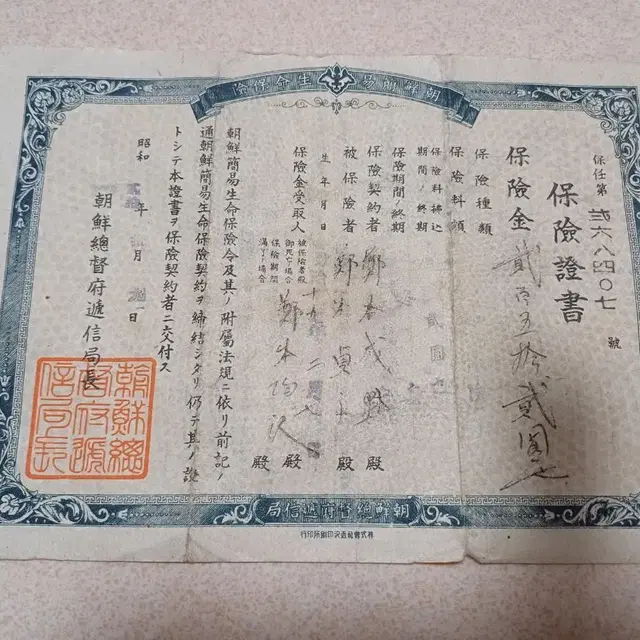 朝鮮簡易生命保險
保任第 弐六八四〇七 號
保險證書
保險金 貳百五拾貳圓也
保險種類
保險料額 貳圓也
保險料拂込期間ノ終期
保險期間ノ終期
保險契約者 鄭 殿
被保險者 鄭 殿
生年月日
保險金受取人
被保險者殿御死亡ノ場合
保險期間滿了ノ場合
鄭 殿
殿
朝鮮簡易生命保險令及其ノ附屬法規ニ依リ前記ノ
通朝鮮簡易生命保險契約ヲ締結シタリ仍テ其ノ證
トシテ本證書ヲ保險契約者ニ交付ス
昭和 年 月 日
朝鮮總督府遞信局長
朝鮮總督府遞信局長
朝鮮總督府遞信局